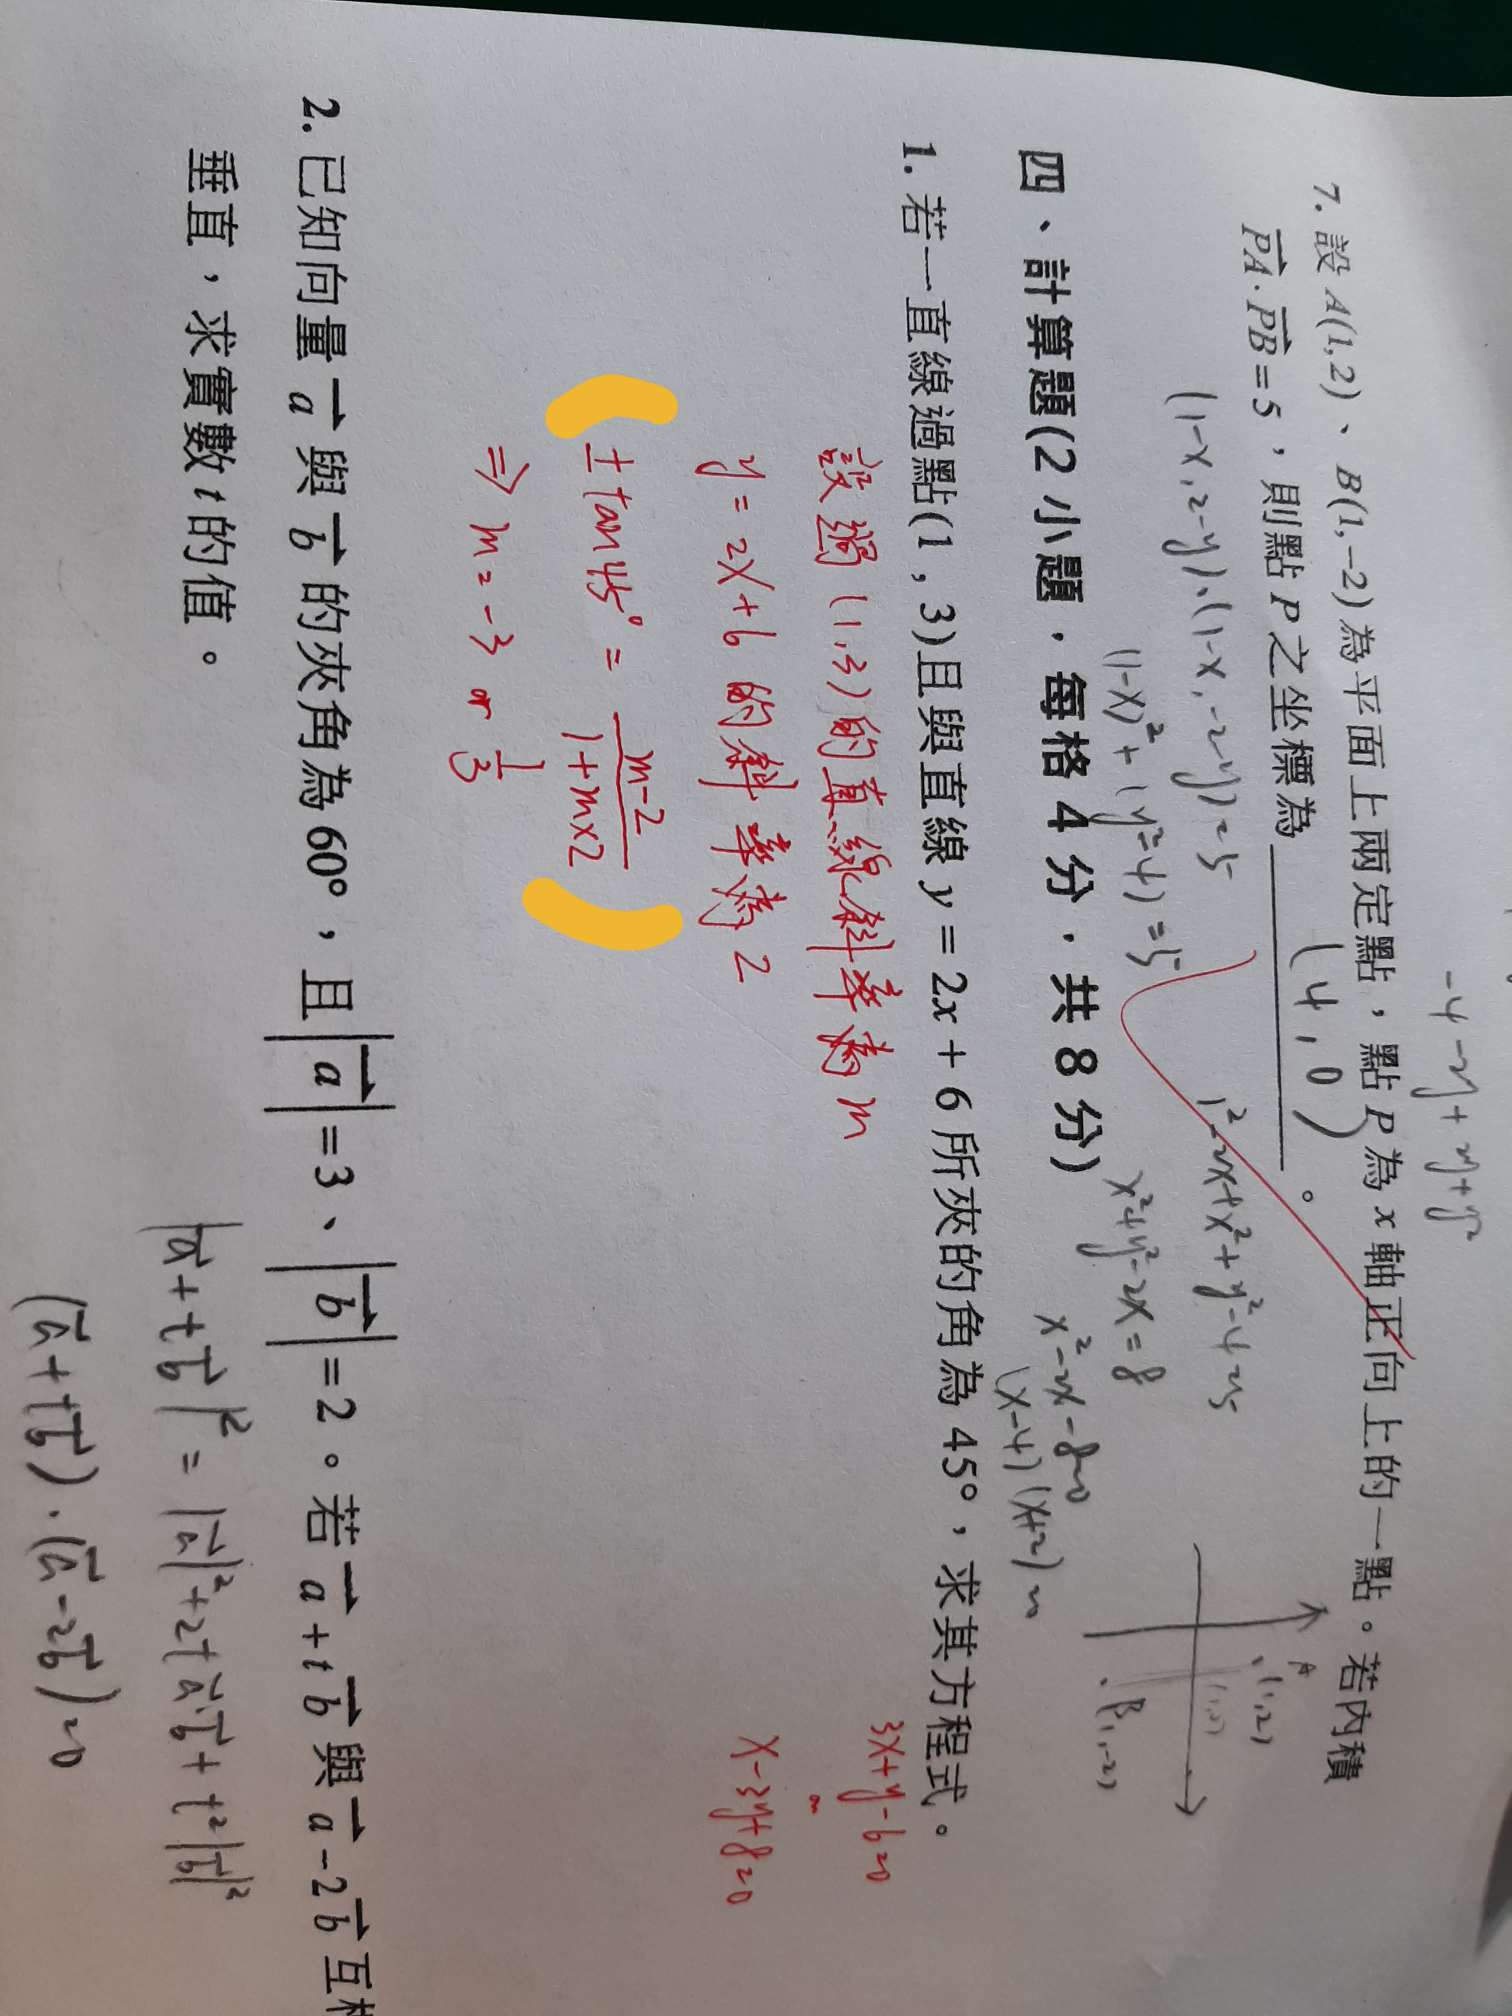 -4-2y+2y+y²
7. 設 A(1,2)、B(1,-2)為平面上兩定點，點 P 為 x 軸正向上的一點。若內積
PA·PB=5，則點 P 之坐標為 (4,0)。
(1-x, 2-y)·(1-x, -2-y)=5
1²-2x+x²+y²-4=5
(1-x)²+(y²-4)=5
x²+y²-2x=8
x²-2x-8=0
(x-4)(x+2)=0
A
(1,2)
B(1,-2)
四、計算題(2 小題．每格 4 分．共 8 分)
1. 若一直線過點(1,3)且與直線 y=2x+6 所夾的角為 45°，求其方程式。
設過(1,3)的直線斜率為 m
3x+y-6=0
or
x-3y+8=0
y=2x+6 的斜率為 2
±tan45°=(m-2)/(1+m×2)
⇒ m=-3 or 1/3
2. 已知向量 a 與 b 的夾角為 60°，且|a|=3、|b|=2。若 a+tb 與 a-2b 互相
垂直，求實數 t 的值。
|a+tb|²=|a|²+2ta·b+t²|b|²
(a+tb)·(a-2b)=0